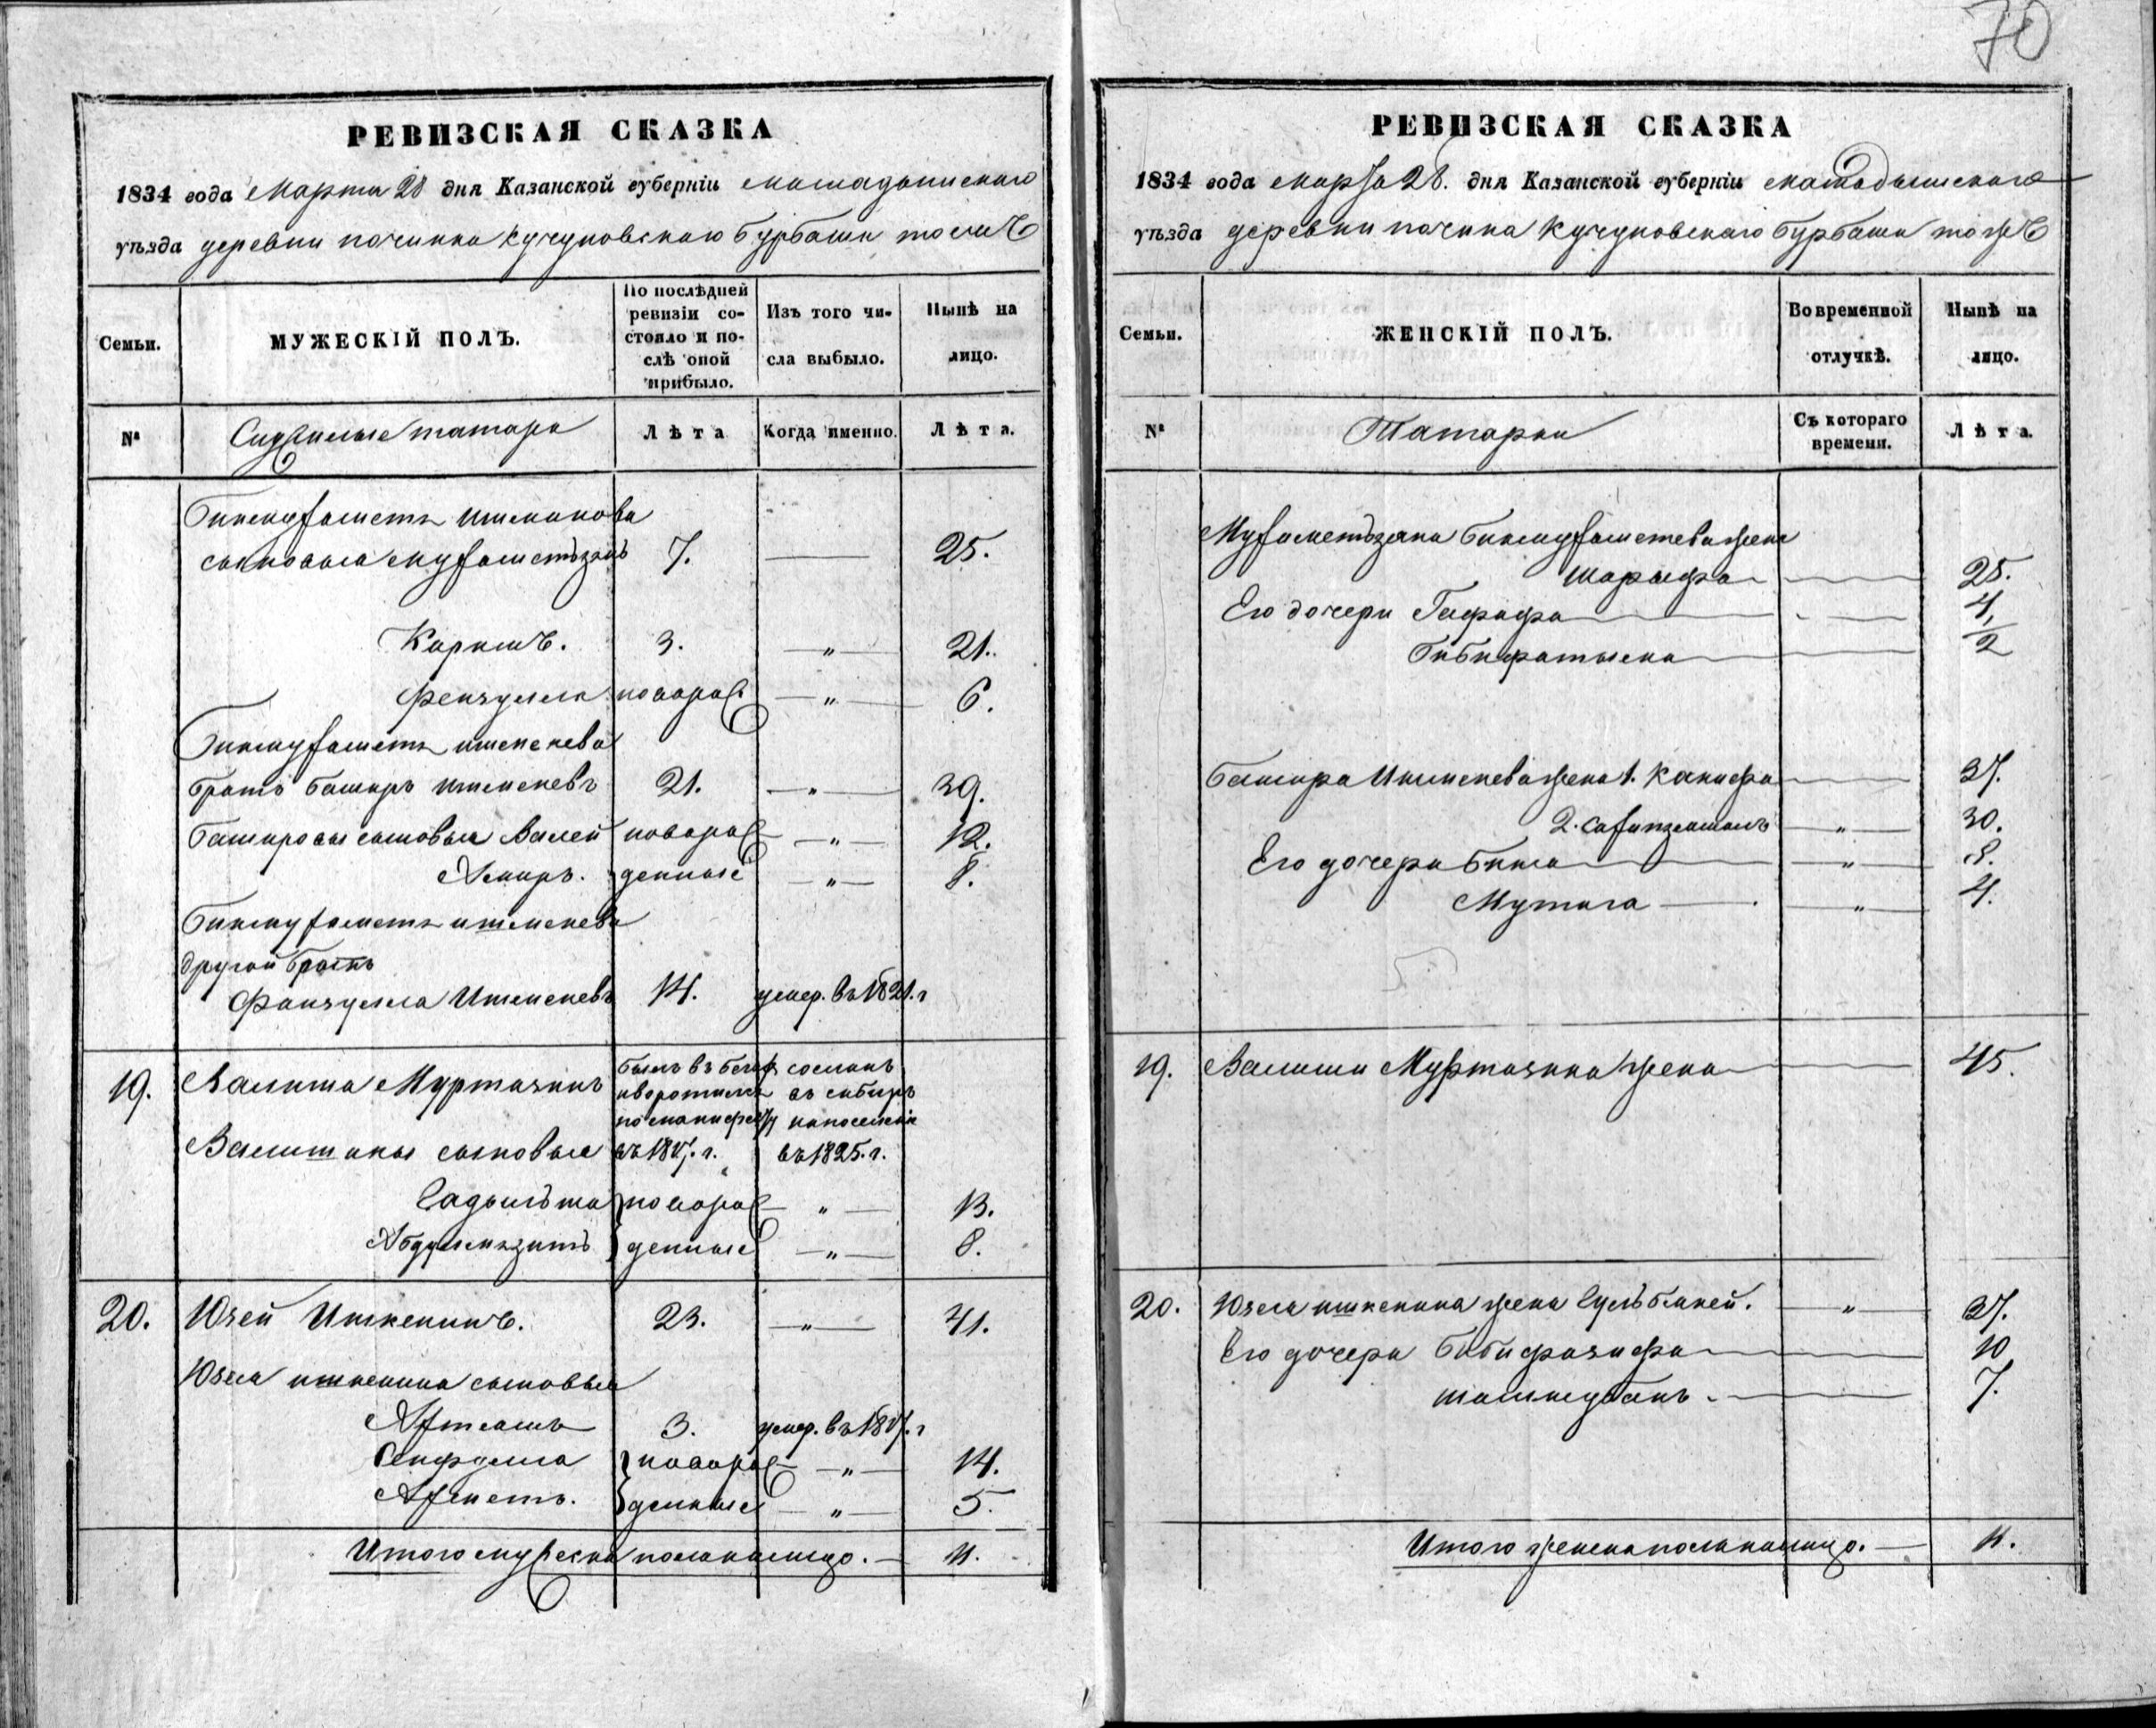 70
РЕВИЗСКАЯ СКАЗКА
1834 года Марта 28 дня Казанской губерніи Мамадышскаго
уѣзда деревни починка Кучуковскаго Бурбаши тожъ
Семьи.
МУЖЕСКІЙ ПОЛЪ.
По послѣдней ревизіи со-
стояло и по-
слѣ оной
прибыло.
Изъ того чи-
сла выбыло.
Нынѣ на
лицо.
№
татара
Лѣта
Когда именно.
Лѣта.
Бикмухаметя Ишменева
сыновья Мухаметьзянъ 7. — 25.
Каримъ. 3. — „ — 21.
Фейзулла новорож — „ — 6.
Бикмухаметя Ишменева
братъ Баширъ Ишменевъ 21. — „ — 39.
Башировы сыновья Валей новорож — „ — 12.
Амиръ. денные — „ — 8.
Бикмухаметя Ишменева
другой братъ
Файзулла Ишменевъ 14. умер. въ 1821. г
19. Валиша Муртазинъ былъ въ бегах сосланъ
иворотился въ сибирь
по манифесту напоселеніе
Валишины сыновья въ 18 г. въ 1825. г.
Садыкъ новорож — „ — 13.
денные — „ — 8.
20. Юзей Ишкенинъ. 23. — „ — 41.
Юзея Ишкенина сыновья
Ахтямъ 3. умер. въ 18 г
Сейфулла новорож — „ — 14.
Ахметь. денные — „ — 5.
Итого мужеска пола налицо. — 11.
РЕВИЗСКАЯ СКАЗКА
1834 года Марта 28. дня Казанской губерніи Мамадышскаго
уѣзда деревни починка Кучуковскаго Бурбаши тожъ
Семьи.
ЖЕНСКІЙ ПОЛЪ.
Во временной
отлучкѣ.
Нынѣ на
лицо.
№
Татарки
Съ котораго
времени.
Лѣта.
Мухаметьзяна Бикмухаметева жена
Шарифа — 25.
Его дочери Гафифа — 4.
Бибифатыма — 2
Башира Ишменева жена 1. Ханифа — 37.
2. — „ — 30.
Его дочери Бика — „ — 8.
Мутига — „ — 4.
19. Валиши Муртазина жена — 45.
20. Юзея Ишкенина жена Сульбикей. — „ — 37.
Его дочери Биби — 10
— 7.
Итого женска пола налицо. — 11.